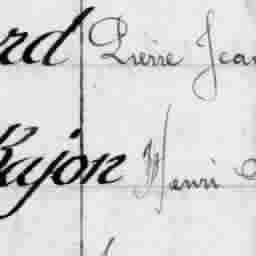 rd Pierre Jean
Rajon Henri